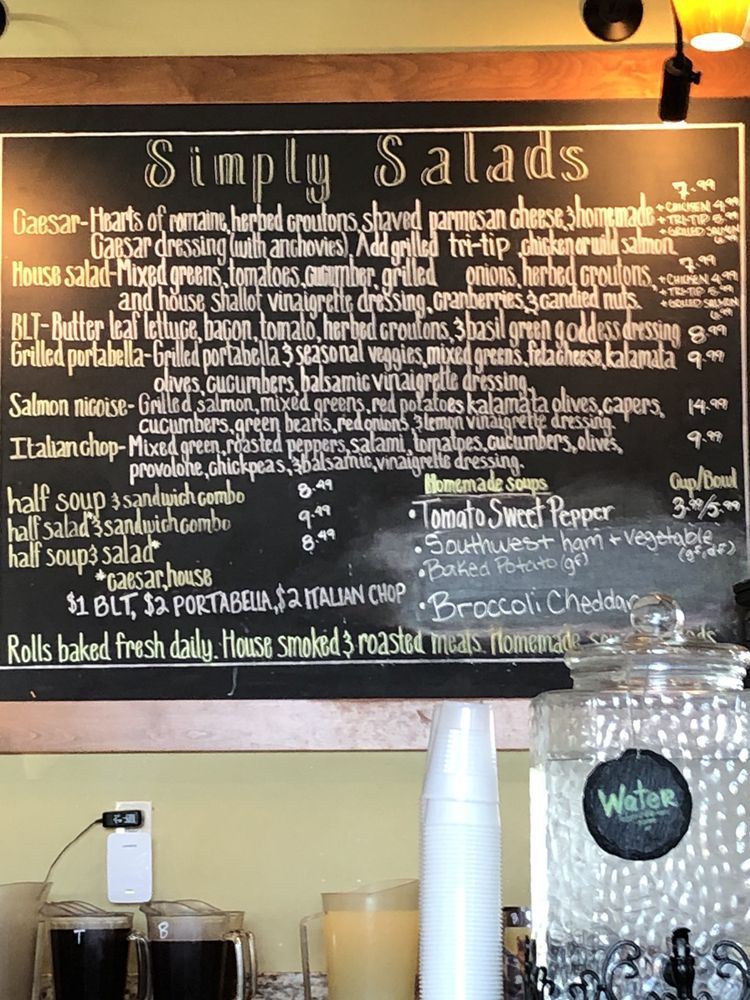 Simply Salads
7.99
Caesar-Hearts of romaine, herbed croutons, shaved parmesan cheese, & homemade + CHICKEN 4.99
+ TRI-TIP 5.99
Caesar dressing (with anchovies). Add grilled tri-tip chicken or wild salmon + GRILLED SALMON
6.99
7.99
House salad-Mixed greens, tomatoes, cucumber, grilled onions, herbed croutons, + CHICKEN 4.99
+ TRI-TIP
and house shallot vinaigrette dressing, cranberries, & candied nuts. + GRILLED SALMON
6.99
BLT-Butter leaf lettuce, bacon, tomato, herbed croutons, & basil green goddess dressing 8.99
Grilled portabella-Grilled portabella & seasonal veggies, mixed greens, feta cheese, kalamata 9.99
olives, cucumbers, balsamic vinaigrette dressing.
Salmon nicoise-Grilled salmon, mixed greens, red potatoes kalamata olives, capers, 14.99
cucumbers, green beans, red onions, & lemon vinaigrette dressing.
Italian chop-Mixed green, roasted peppers, salami, tomatoes, cucumbers, olives, 9.99
provolone, chickpeas, & balsamic vinaigrette dressing.
half soup & sandwich combo 8.49
half salad* & sandwich combo 9.49
half soup & salad* 8.49
*caesar, house
$1 BLT, $2 PORTABELLA, $2 ITALIAN CHOP
Homemade soups Cup/Bowl
• Tomato Sweet Pepper 3.99/5.99
• Southwest ham + vegetable
(gf, df)
• Baked Potato (gf)
• Broccoli Cheddar
Rolls baked fresh daily. House smoked & roasted meats. Homemade
Water
T
B
B